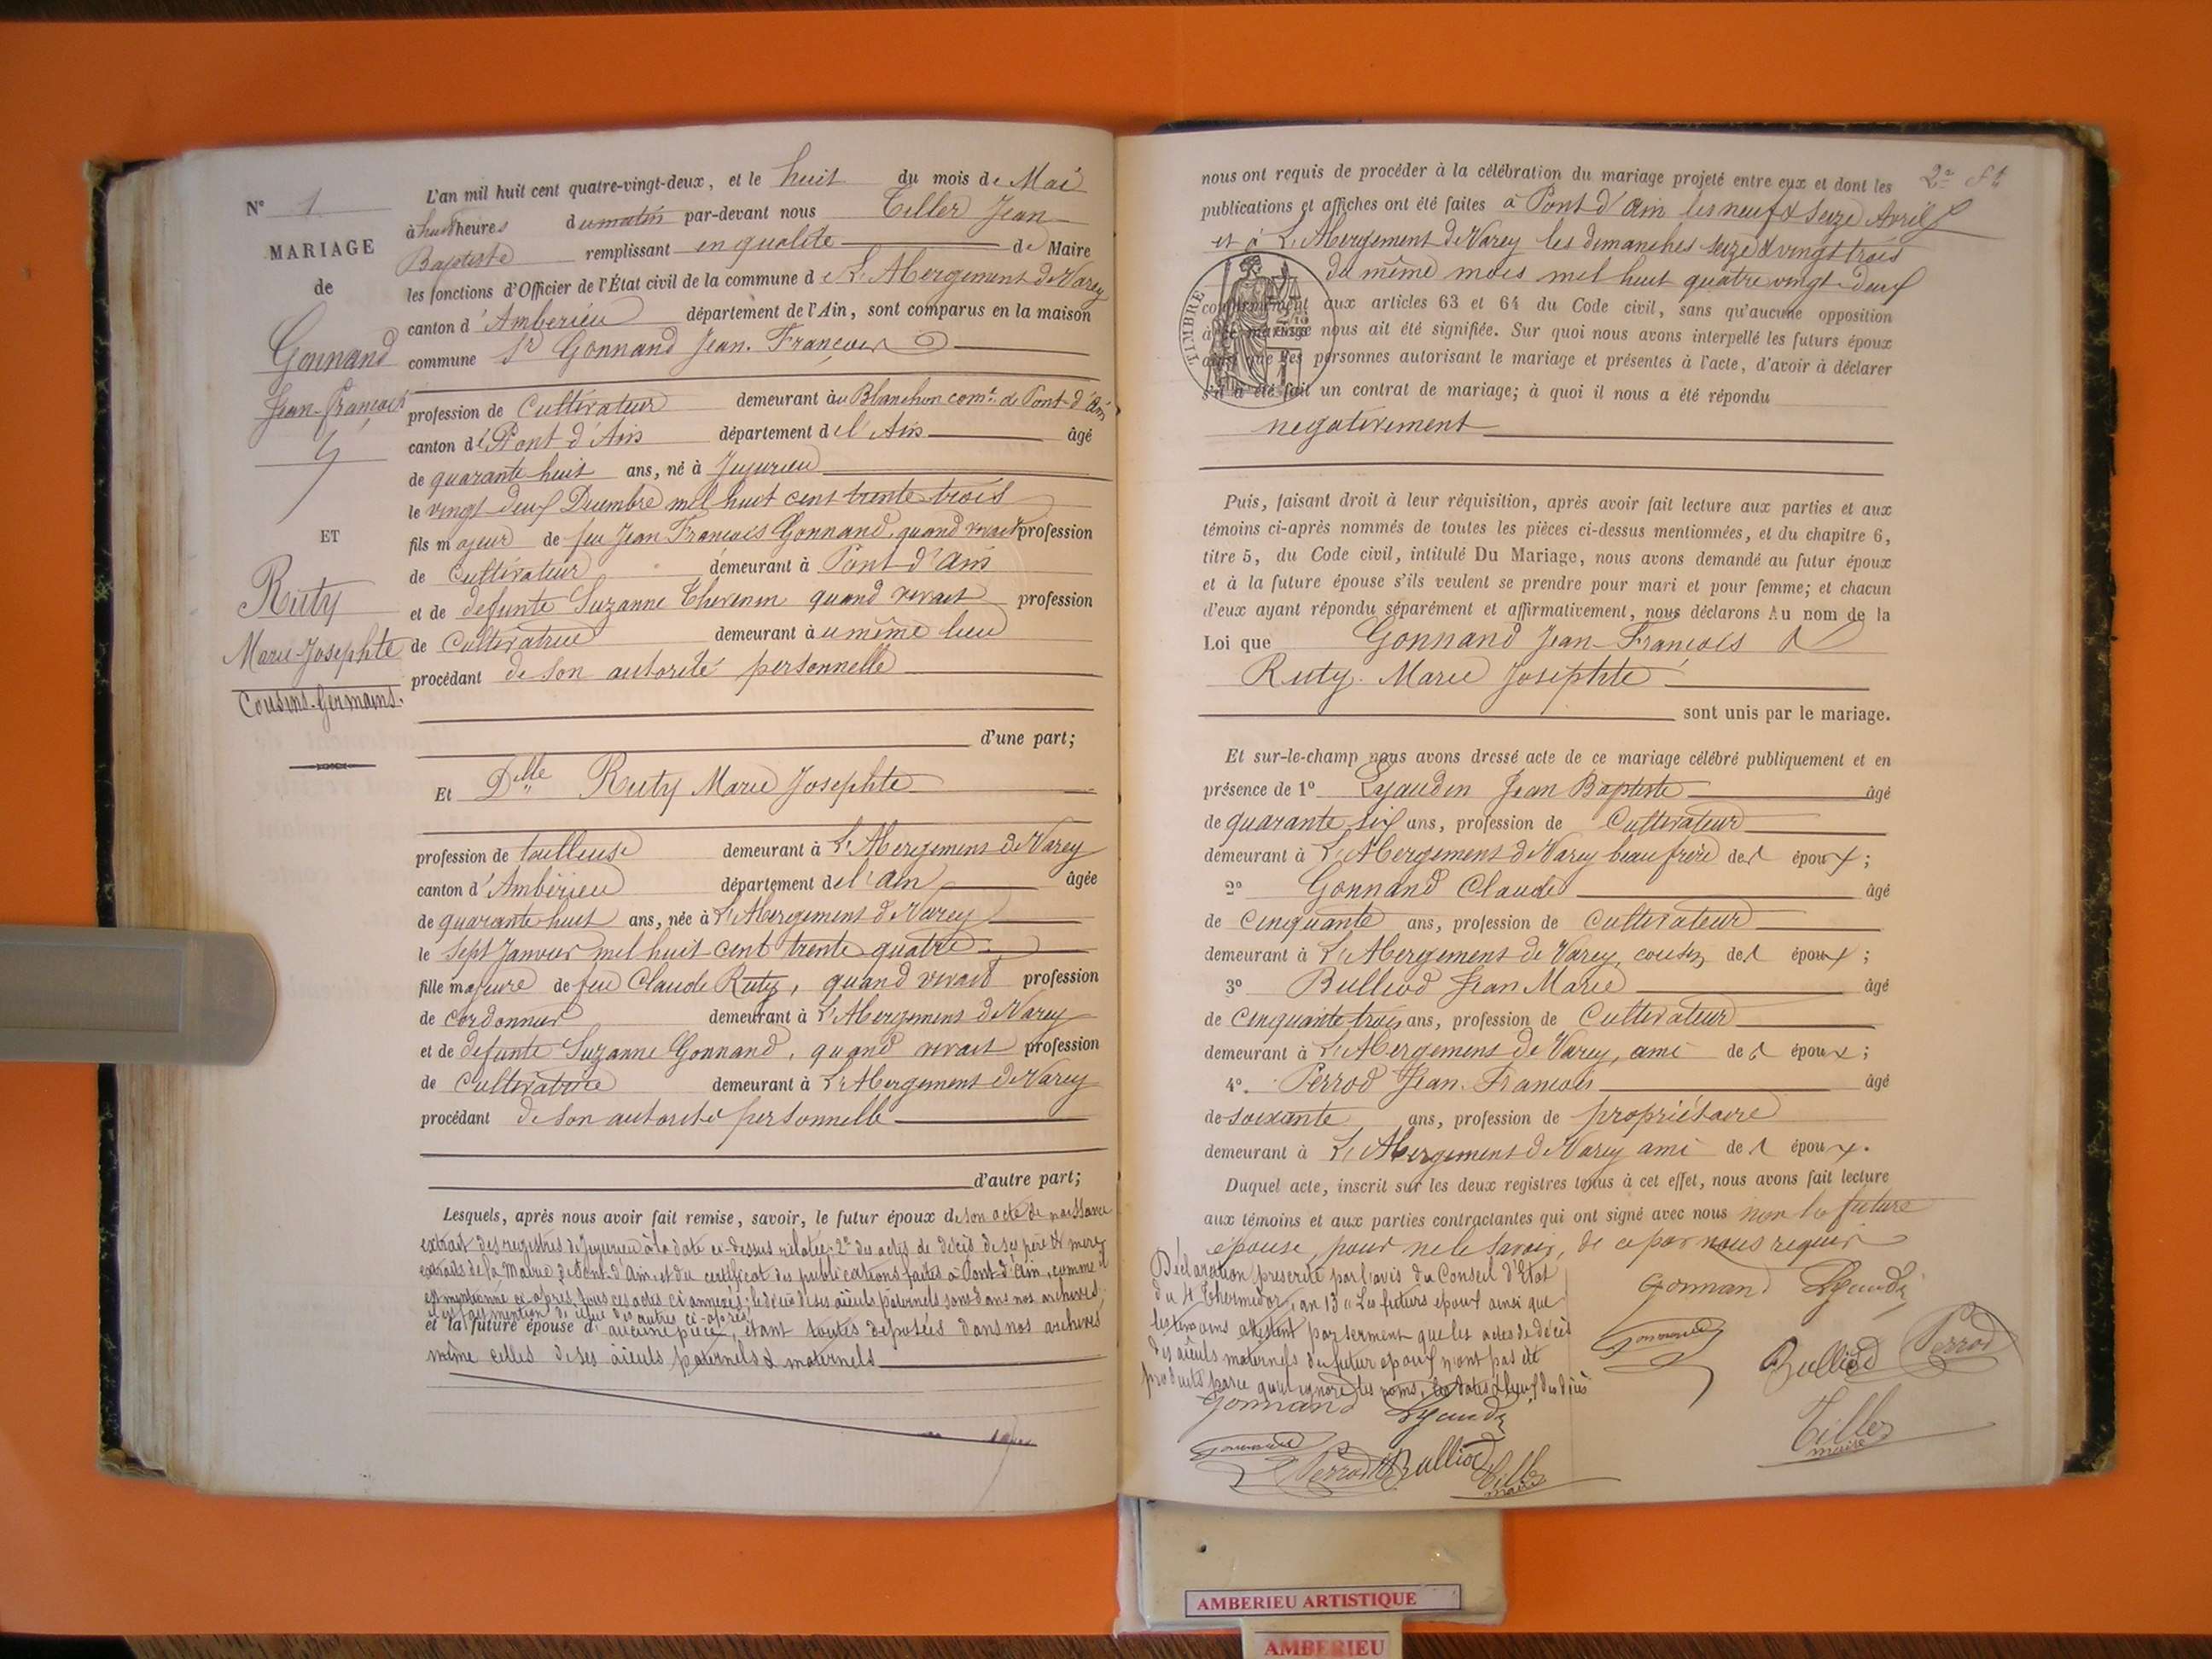 N° 1
MARIAGE
de
Gonnand
Jean-François
ET
Ruty
Marie-Josephte
Cousins-Germains.
L'an mil huit cent quatre-vingt-deux, et le huit du mois de Mai
à huit heures du matin par-devant nous Tiller Jean
Baptiste remplissant en qualité de Maire
les fonctions d'Officier de l'État civil de la commune de L'Abergement de Varey
canton d'Amberieu département de l'Ain, sont comparus en la maison
commune Sr Gonnand Jean-François
profession de Cultivateur demeurant au Blanchon come de Pont-d'Ain
canton de Pont d'Ain département de l'Ain âgé
de quarante huit ans, né à Jujurieu
le vingt deux Decembre mil huit cent trente trois
fils majeur de feu Jean François Gonnand, quand vivait profession
de Cultivateur demeurant à Pont d'Ain
et de defunte Suzanne Thevenin quand vivait profession
de Cultivatrice demeurant au même lieu
procédant de son autorité personnelle
d'une part;
Et Dlle Ruty Marie Josephte
profession de tailleuse demeurant à L'Abergement de Varey
canton d'Amberieu département de l'Ain âgée
de quarante-huit ans, née à L'Abergement de Varey
le sept Janvier mil huit cent trente quatre
fille majeure de feu Claude Ruty, quand vivait profession
de Cordonnier demeurant à L'Abergement de Varey
et de defunte Suzanne Gonnand, quand vivait profession
de Cultivatrice demeurant à L'Abergement de Varey
procédant de son autorité personnelle
d'autre part;
Lesquels, après nous avoir fait remise, savoir, le futur époux de son acte de naissance
extrait des registres de Jujurieu à la date ci-dessus relatée; 2° des actes de décès de ses père & mere
extraits de la Mairie de Pont-d'Ain et du certificat des publications faites à Pont-d'Ain, comme il
est mentionné ci-après, tous ces actes ci annexés; le décès de ses aïeuls paternels sont dans nos archives,
il est fait mention de ceux des autres ci-après
et la future épouse d'aucune pièce, étant toutes déposées dans nos archives
même celles de ses aïeuls paternels & maternels
2e
nous ont requis de procéder à la célébration du mariage projeté entre eux et dont les
publications et affiches ont été faites à Pont d'Ain les neuf & seize Avril
et à L'Abergement de Varey les dimanches seize & vingt trois
du même mois mil huit quatre vingt-deux
TIMBRE
conformément aux articles 63 et 64 du Code civil, sans qu'aucune opposition
à ce mariage nous ait été signifiée. Sur quoi nous avons interpellé les futurs époux
ainsi que les personnes autorisant le mariage et présentes à l'acte, d'avoir à déclarer
s'il a été fait un contrat de mariage; à quoi il nous a été répondu
negativement
Puis, faisant droit à leur réquisition, après avoir fait lecture aux parties et aux
témoins ci-après nommés de toutes les pièces ci-dessus mentionnées, et du chapitre 6,
titre 5, du Code civil, intitulé Du Mariage, nous avons demandé au futur époux
et à la future épouse s'ils veulent se prendre pour mari et pour femme; et chacun
d'eux ayant répondu séparément et affirmativement, nous déclarons Au nom de la
Loi que Gonnand Jean-François &
Ruty Marie Josephte
sont unis par le mariage.
Et sur-le-champ nous avons dressé acte de ce mariage célébré publiquement et en
présence de 1° Lyaudin Jean Baptiste âgé
de quarante six ans, profession de Cultivateur
demeurant à L'Abergement de Varey beau frère de l'époux;
2° Gonnand Claude âgé
de Cinquante ans, profession de Cultivateur
demeurant à L'Abergement de Varey, cousin de l'époux;
3° Bulliod Jean Marie âgé
de Cinquante trois ans, profession de Cultivateur
demeurant à L'Abergement de Varey, ami de l'époux;
4°. Perrod Jean-François âgé
de soixante ans, profession de propriétaire
demeurant à L'Abergement de Varey ami de l'époux.
Duquel acte, inscrit sur les deux registres tenus à cet effet, nous avons fait lecture
aux témoins et aux parties contractantes qui ont signé avec nous non la future
épouse, pour ne le savoir, de ce par nous requise
Déclaration prescrite par l'avis du Conseil d'Etat
du 4 Thermidor, an 13 « Les futurs epoux ainsi que
les témoins attestent par serment que les actes de décès
des aïeuls maternels du futur epoux n'ont pas été
produits parce qu'il ignore les noms, les dates & lieux des décès
Gonnand Lyaudin
Gonnand
Bulliod Perrod
Tiller
maire
Gonnand Lyaudin
Gonnand Perrod Bulliod Tiller
maire
AMBERIEU ARTISTIQUE
AMBERIEU